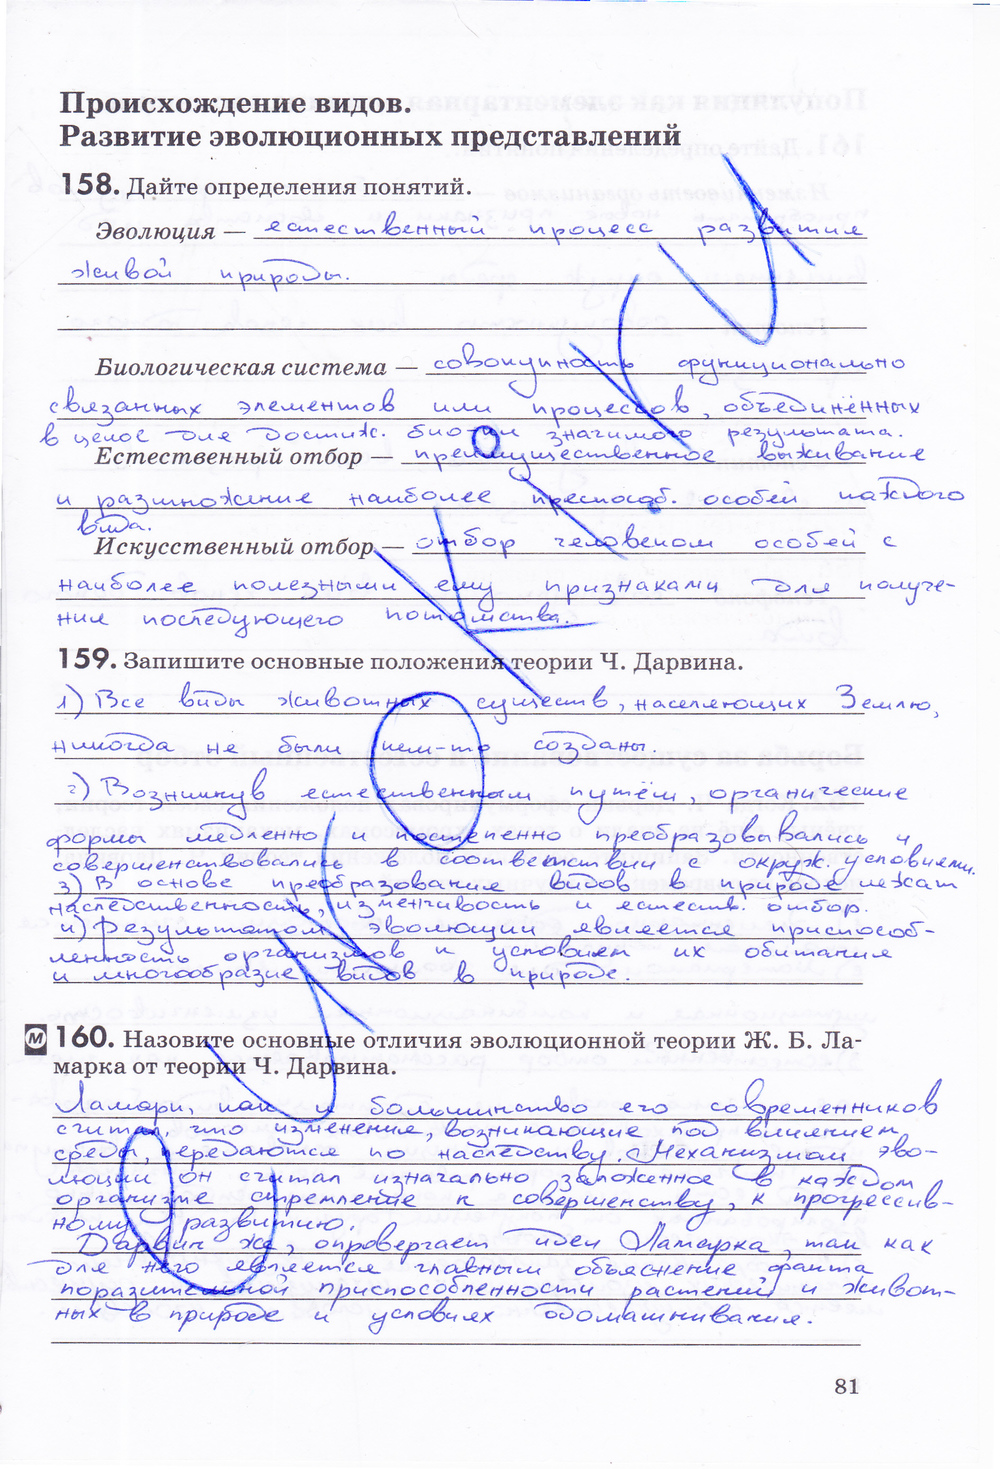 Происхождение видов.
Развитие эволюционных представлений
158. Дайте определения понятий.
Эволюция — естественный процесс развития
живой природы.
Биологическая система — совокупность функционально
связанных элементов или процессов, объединённых
в целое для достиж. био-ки значимого результата.
Естественный отбор — преимущественное выживание
и размножение наиболее преспособ. особей каждого
вида.
Искусственный отбор — отбор человеком особей с
наиболее полезными ему признаками для получе-
ния последующего потомства.
159. Запишите основные положения теории Ч. Дарвина.
1) Все виды животных существ, населяющих Землю,
никогда не были кем-то созданы.
2) Возникнув естественным путём, органические
формы медленно и постепенно преобразовывались и
совершенствовались в соответствии с окруж. условиями.
3) В основе преобразования видов в природе лежат
наследственность, изменчивость и естеств. отбор.
4) Результатом эволюции является приспособ-
ленность организмов к условиям их обитания
и многообразие видов в природе.
М 160. Назовите основные отличия эволюционной теории Ж. Б. Ла-
марка от теории Ч. Дарвина.
Ламарк, как и большинство его современников
считал, что изменение, возникающие под влиянием
среды, передаются по наследству. Механизмом эво-
люции он считал изначально заложенное в каждом
организме стремление к совершенству, к прогрессив-
ному развитию.
Дарвин же, опровергает идеи Ламарка, так как
для него является главным объяснение факта
поразительной приспособленности растений и живот-
ных в природе и условиях одомашнивания.
81
ОТ УРОКОВ.КИ